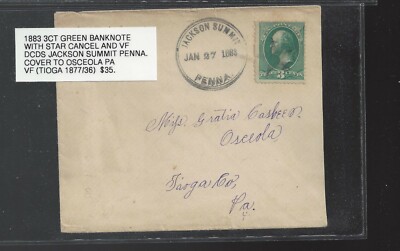 1883 3CT GREEN BANKNOTE
WITH STAR CANCEL AND VF
DCDS JACKSON SUMMIT PENNA.
COVER TO OSCEOLA PA
VF (TIOGA 1877/36) $35.
JACKSON SUMMIT
JAN 27
PENNA.
3
Miss Gratia
Osceola
Tioga Co,
Pa.